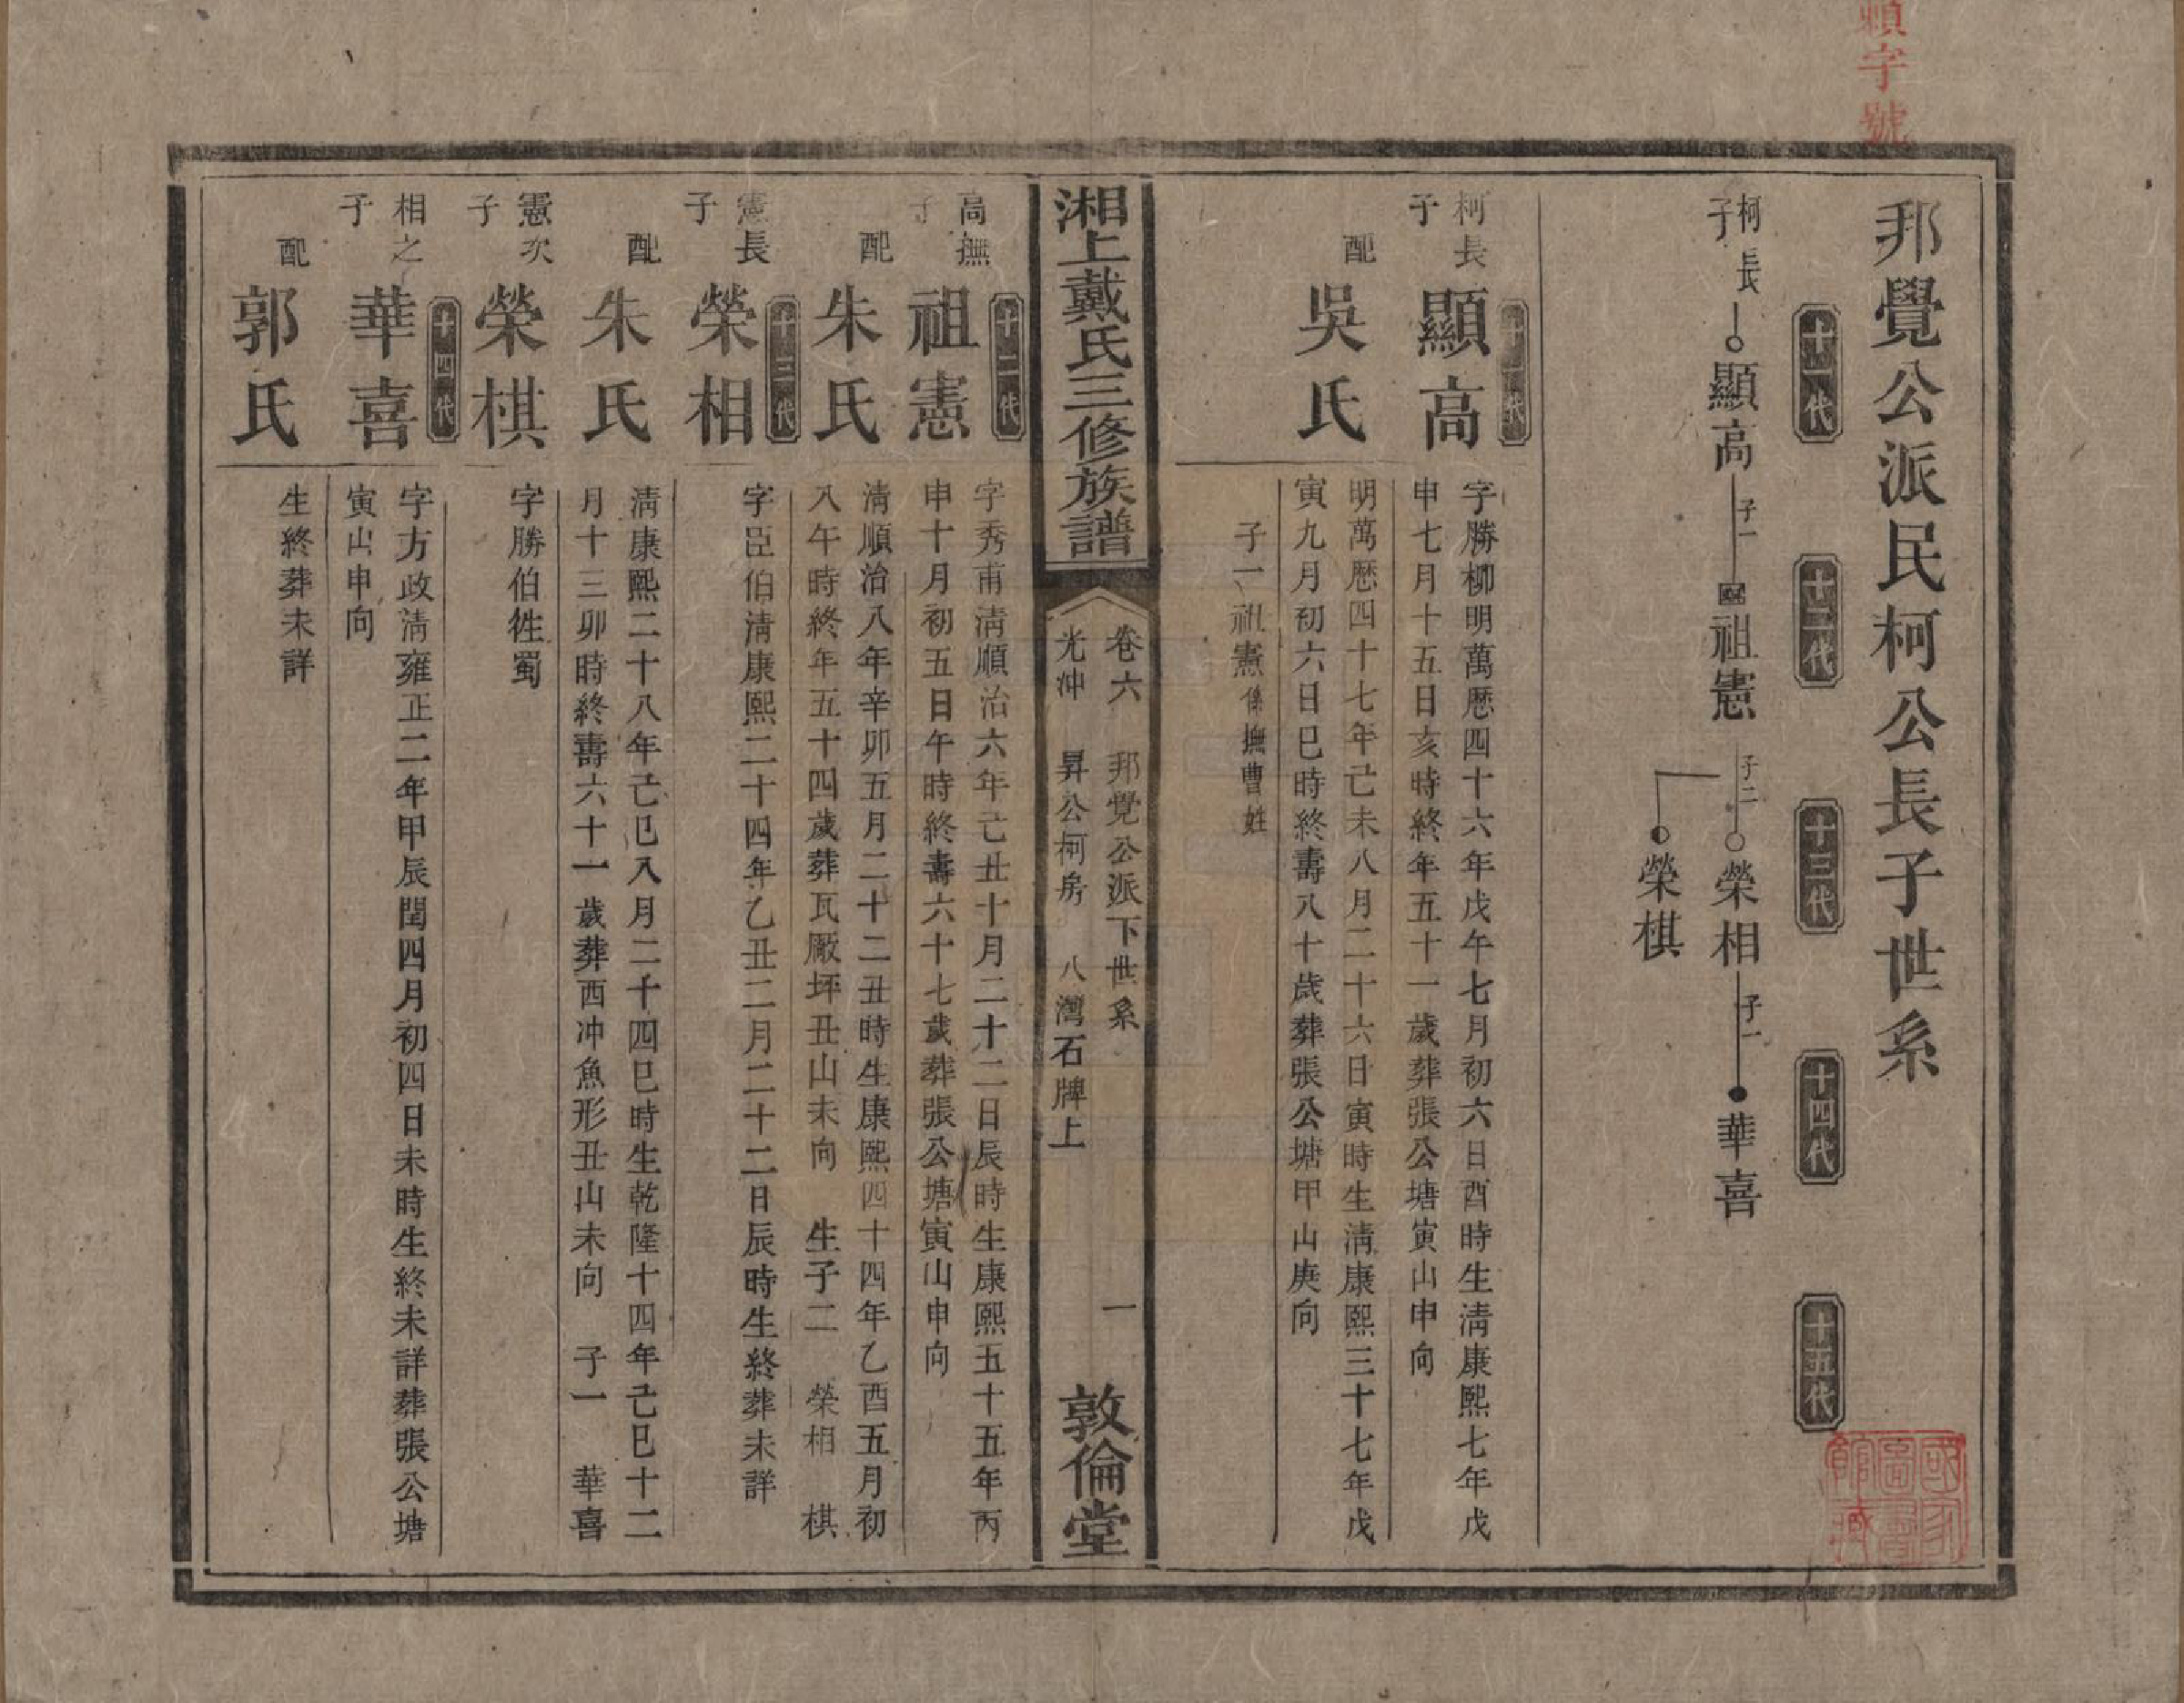 頼字號
邦覺公派民柯公長子世系
十一代
十二代
十三代
十四代
十五代
柯長子
顯高
子一
祖憲
子二
榮相
子一
華喜
榮棋
十一代
柯長子
顯高
字勝柳明萬歷四十六年戊午七月初六日酉時生清康熙七年戊
申七月十五日亥時終年五十一歲葬張公塘寅山申向
配
吳氏
明萬歷四十七年己未八月二十六日寅時生清康熙三十七年戊
寅九月初六日巳時終壽八十歲葬張公塘甲山庚向
子一祖憲係撫曹姓
湘上戴氏三修族譜
卷六 邦覺公派下世系 一
光冲 昇公柯房 八灣石牌上
敦倫堂
十二代
高撫子
祖憲
字秀甫清順治六年己丑十月二十二日辰時生康熙五十五年丙
申十月初五日午時終壽六十七歲葬張公塘寅山申向
配
朱氏
清順治八年辛卯五月二十二丑時生康熙四十四年乙酉五月初
八午時終年五十四歲葬瓦廠坪丑山未向 生子二 榮相 棋
十三代
憲長子
榮相
字臣伯清康熙二十四年乙丑二月二十二日辰時生終葬未詳
配
朱氏
清康熙二十八年己巳八月二十四巳時生乾隆十四年己巳十二
月十三卯時終壽六十一歲葬西冲魚形丑山未向 子一 華喜
憲次子
榮棋
字勝伯徃蜀
十四代
相之子
華喜
字方政清雍正二年甲辰閏四月初四日未時生終未詳葬張公塘
寅山申向
配
郭氏
生終葬未詳
國家圖書館藏